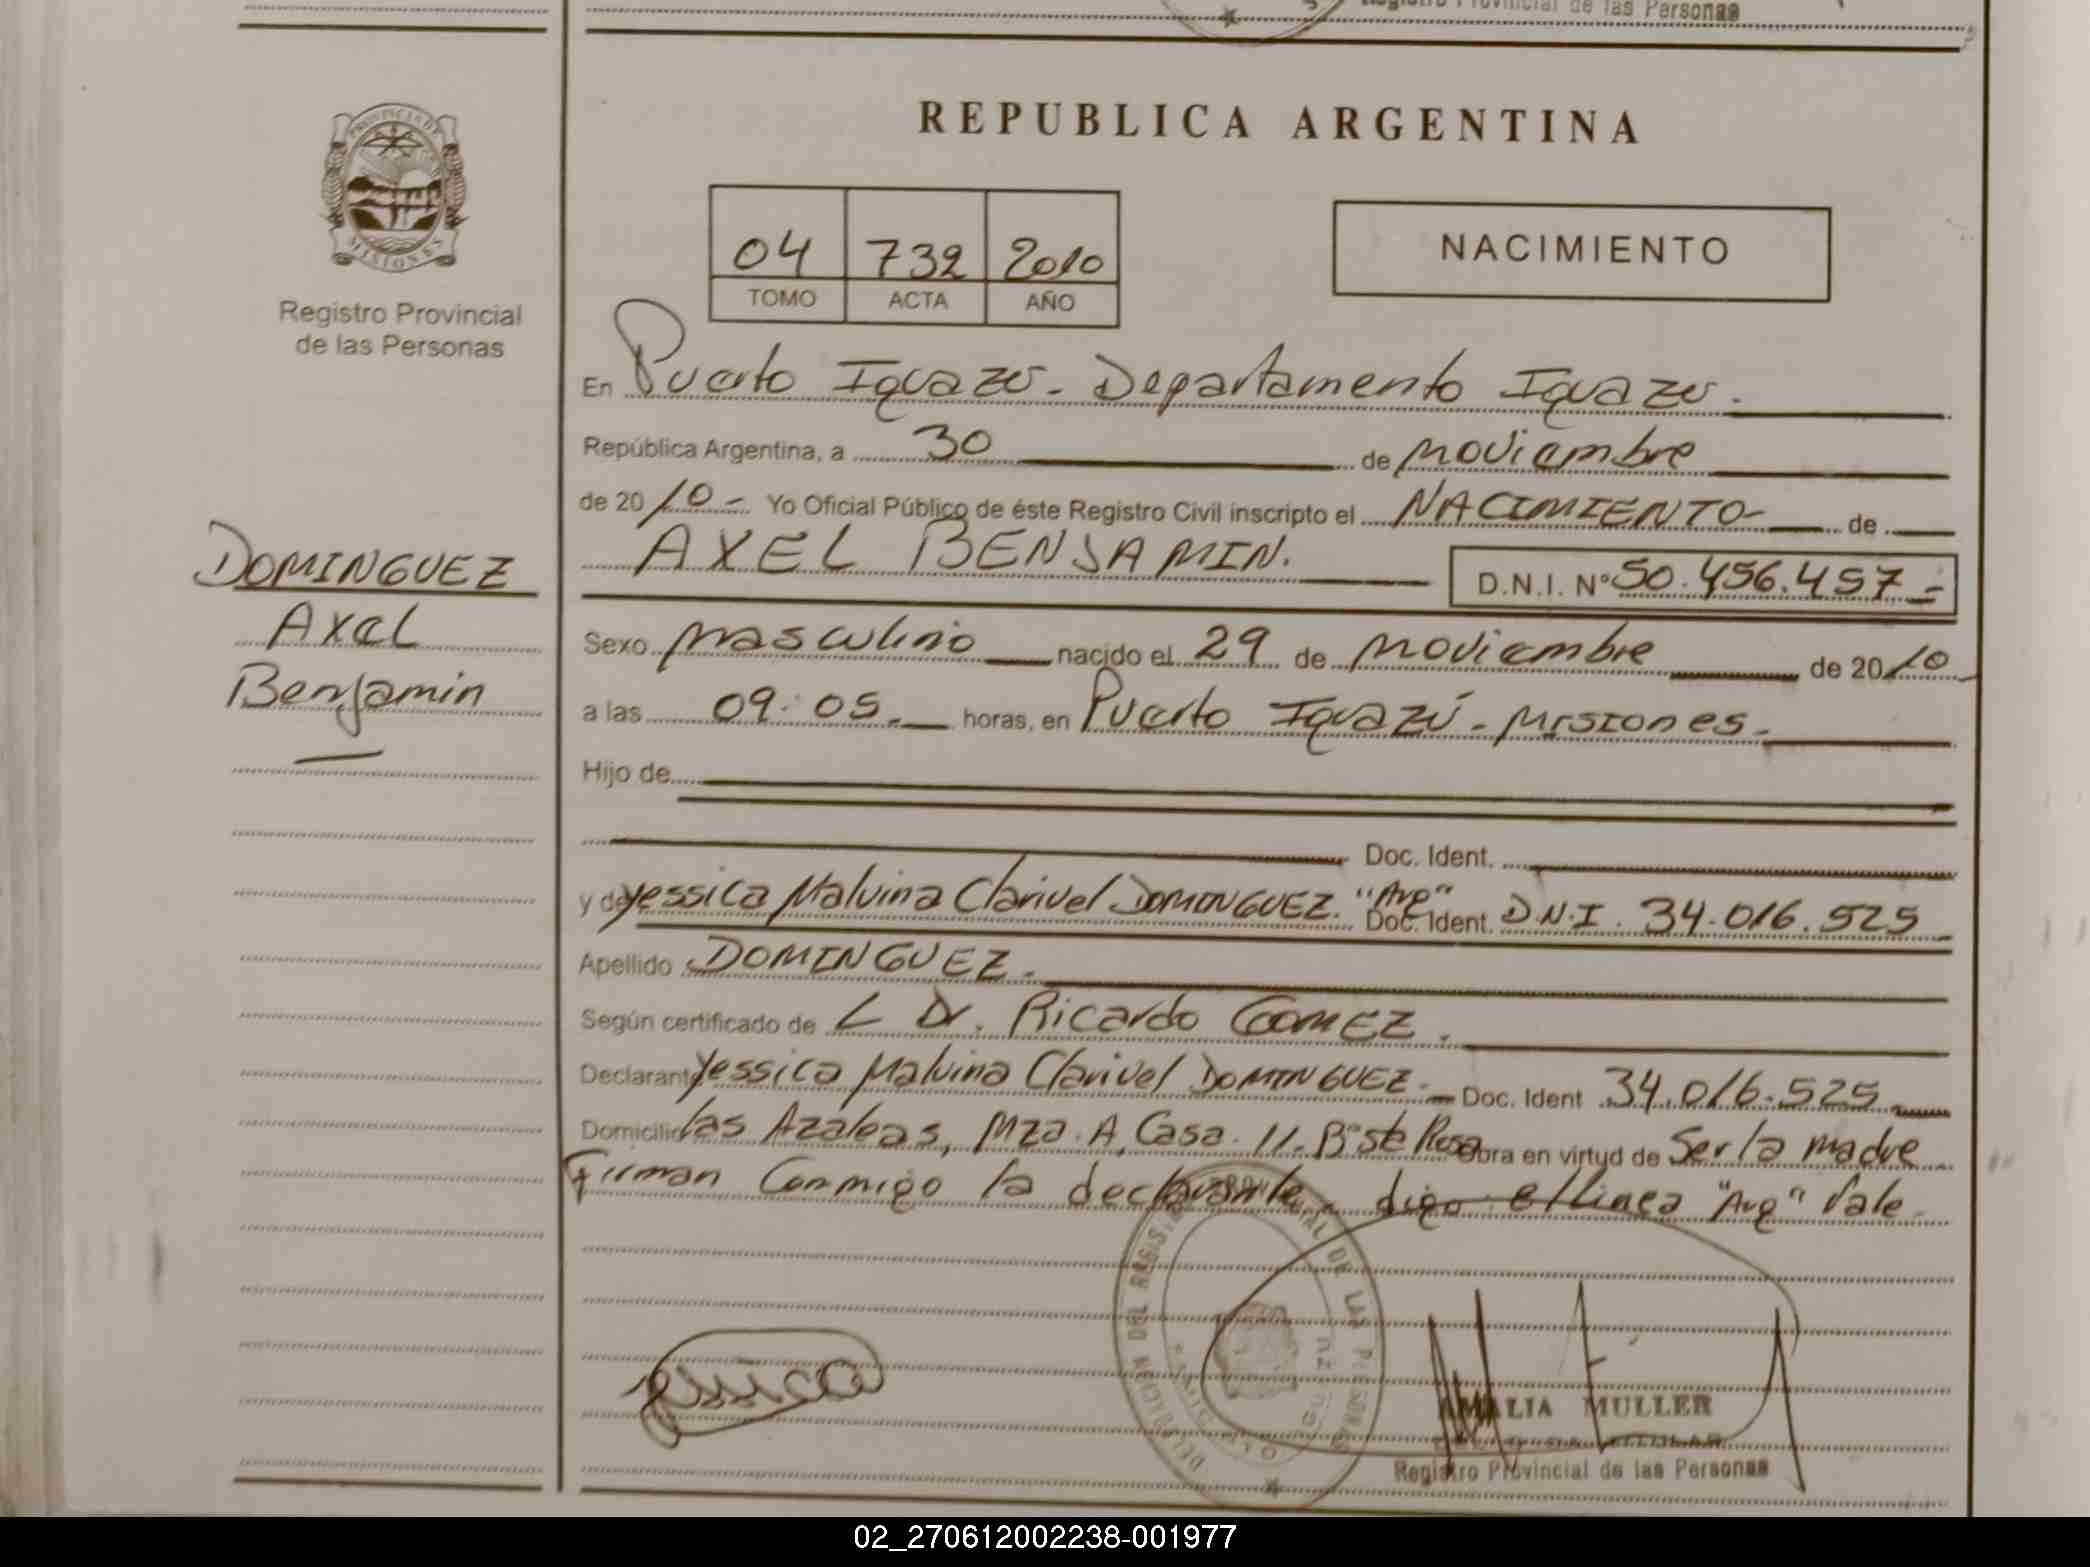 Registro Provincial de las Personas
REPUBLICA ARGENTINA
PROVINCIA DE
MISIONES
Registro Provincial
de las Personas
04 732 2010
TOMO ACTA AÑO
NACIMIENTO
En Puerto Iguazu - Departamento Iguazu.
República Argentina, a 30 de Noviembre
de 2010 - Yo Oficial Público de éste Registro Civil inscripto el NACIMIENTO de
AXEL BENJAMIN. D.N.I. Nº 50.456.457 -
DOMINGUEZ
Axel
Benjamin
Sexo Masculino nacido el 29 de Noviembre de 2010
a las 09:05. horas, en Puerto Iguazú - Misiones.
Hijo de
Doc. Ident.
y de Yessica Malvina Clarivel DOMINGUEZ. "Arg" Doc. Ident. D.N.I. 34.016.525
Apellido DOMINGUEZ.
Según certificado de Dr. Ricardo GOMEZ.
Declarante Yessica Malvina Clarivel DOMINGUEZ - Doc. Ident 34.016.525
Domicilio las Azaleas, Mza. A, Casa. 11. Bº Sta Rosa Obra en virtud de Ser la madre
Firman Conmigo la declarante, digo e/linea "Arg" Vale
DELEGACION DEL REGISTRO PROVINCIAL DE LAS PERSONAS
Yessica
AMALIA MULLER
Registro Provincial de las Personas
02_270612002238-001977